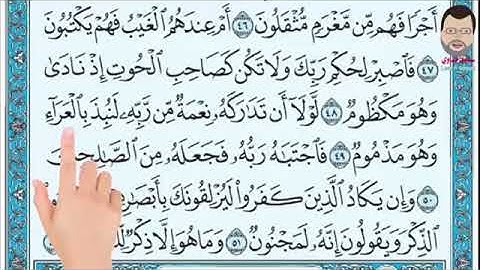 أَجْرًا فَهُم مِّن مَّغْرَمٍ مُّثْقَلُونَ ٤٦ أَمْ عِندَهُمُ ٱلْغَيْبُ فَهُمْ يَكْتُبُونَ
٤٧ فَٱصْبِرْ لِحُكْمِ رَبِّكَ وَلَا تَكُن كَصَاحِبِ ٱلْحُوتِ إِذْ نَادَىٰ
وَهُوَ مَكْظُومٌ ٤٨ لَّوْلَآ أَن تَدَٰرَكَهُۥ نِعْمَةٌ مِّن رَّبِّهِۦ لَنُبِذَ بِٱلْعَرَآءِ
وَهُوَ مَذْمُومٌ ٤٩ فَٱجْتَبَٰهُ رَبُّهُۥ فَجَعَلَهُۥ مِنَ ٱلصَّٰلِحِينَ
٥٠ وَإِن يَكَادُ ٱلَّذِينَ كَفَرُوا۟ لَيُزْلِقُونَكَ
ٱلذِّكْرَ وَيَقُولُونَ إِنَّهُۥ لَمَجْنُونٌ ٥١ وَمَا هُوَ إِلَّا ذِكْرٌ